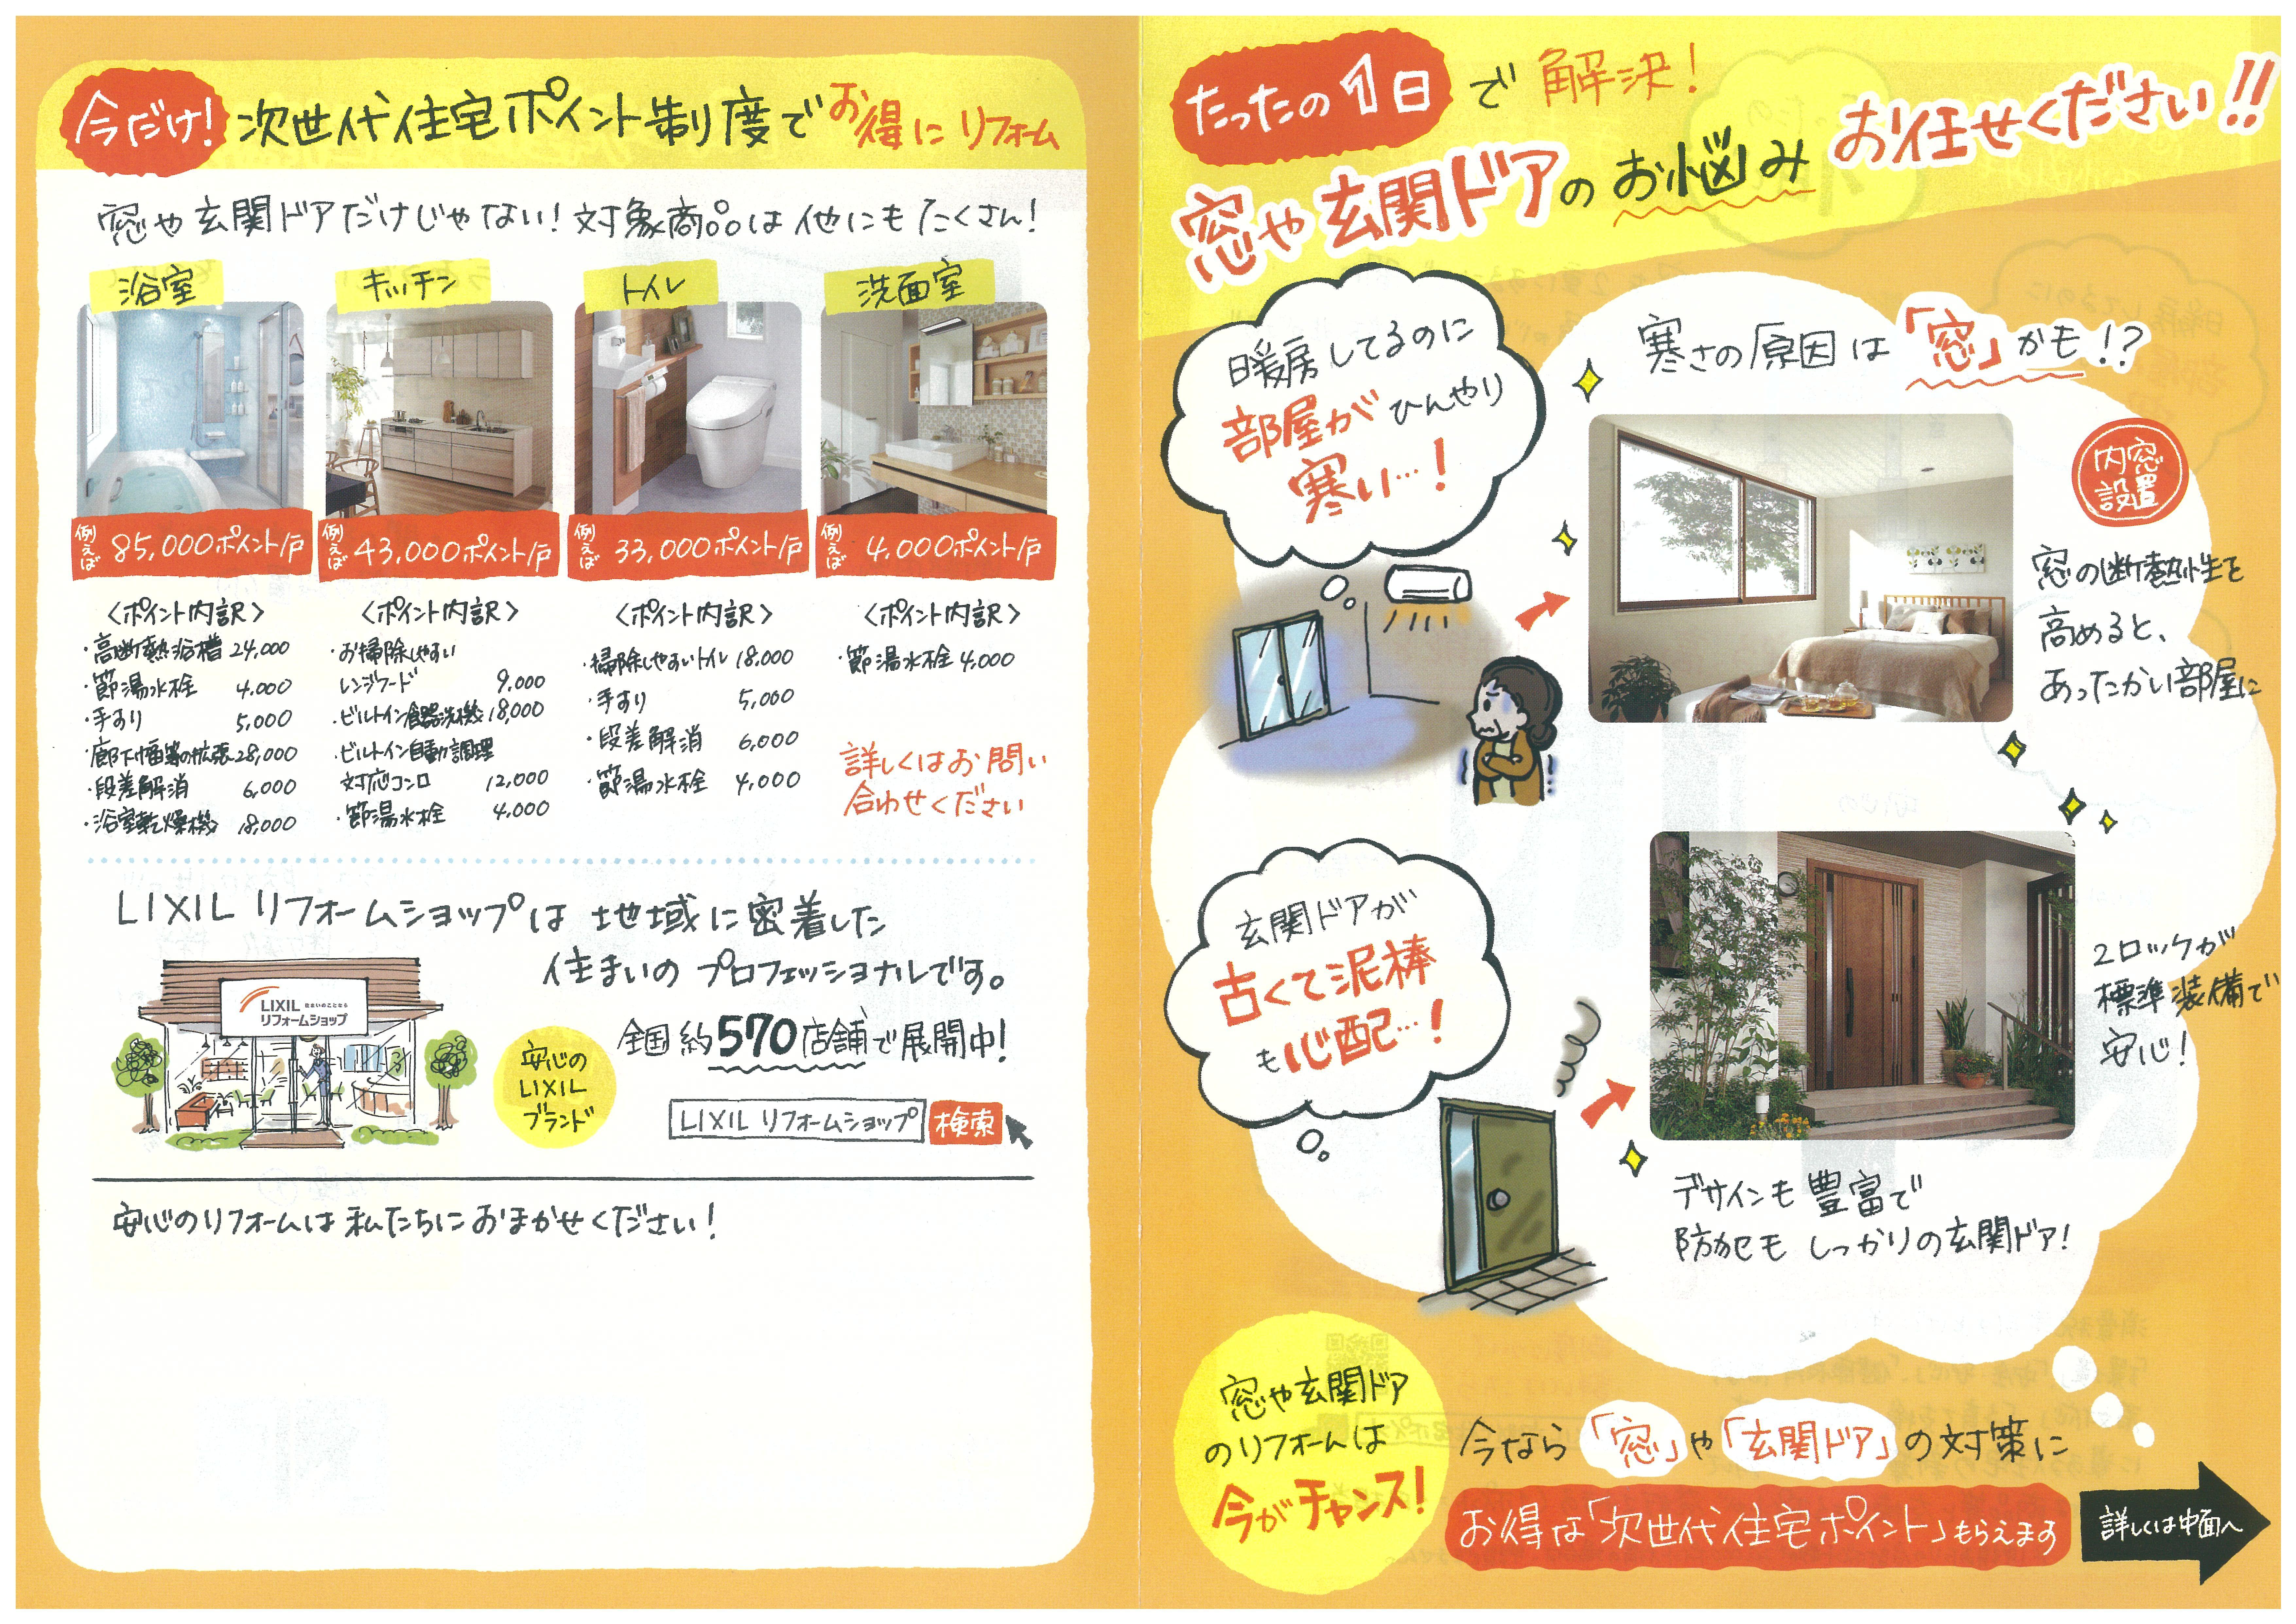 今だけ! 次世代住宅ポイント制度でお得にリフォーム
窓や玄関ドアだけじゃない!対象商品は他にもたくさん!
浴室
例えば 85,000ポイント/戸
<ポイント内訳>
・高断熱浴槽 24,000
・節湯水栓 4,000
・手すり 5,000
・廊下幅等の拡張 28,000
・段差解消 6,000
・浴室乾燥機 18,000
キッチン
例えば 43,000ポイント/戸
<ポイント内訳>
・お掃除しやすい
レンジフード 9,000
・ビルトイン食器洗機 18,000
・ビルトイン自動調理
対応コンロ 12,000
・節湯水栓 4,000
トイレ
例えば 33,000ポイント/戸
<ポイント内訳>
・掃除しやすいトイレ 18,000
・手すり 5,000
・段差解消 6,000
・節湯水栓 4,000
洗面室
例えば 4,000ポイント/戸
<ポイント内訳>
・節湯水栓 4,000
詳しくはお問い
合わせください
LIXILリフォームショップは地域に密着した
住まいのプロフェッショナルです。
LIXIL 住まいのことなら
リフォームショップ
安心の
LIXIL
ブランド
全国約570店舗で展開中!
LIXILリフォームショップ 検索
安心のリフォームは私たちにおまかせください!
たったの1日で解決!
窓や玄関ドアのお悩みお任せください!!
暖房してるのに
部屋がひんやり
寒い…!
寒さの原因は「窓」かも!?
内窓
設置
窓の断熱性を
高めると、
あったかい部屋に
玄関ドアが
古くて泥棒
も心配…!
2ロックが
標準装備で
安心!
デザインも豊富で
防犯もしっかりの玄関ドア!
窓や玄関ドア
のリフォームは
今がチャンス!
今なら「窓」や「玄関ドア」の対策に
お得な「次世代住宅ポイント」もらえます
詳しくは中面へ